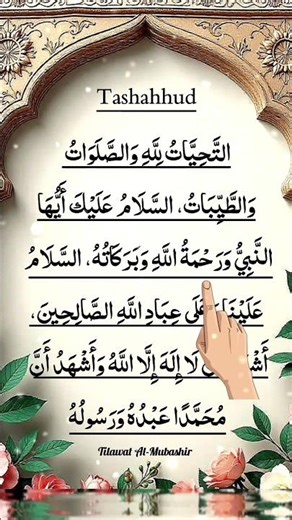 Tashahhud
التَّحِيَّاتُ لِلَّهِ وَالصَّلَوَاتُ
وَالطَّيِّبَاتُ، السَّلَامُ عَلَيْكَ أَيُّهَا
النَّبِيُّ وَرَحْمَةُ اللَّهِ وَبَرَكَاتُهُ، السَّلَامُ
عَلَيْنَا وَعَلَى عِبَادِ اللَّهِ الصَّالِحِينَ،
لَا إِلَهَ إِلَّا اللَّهُ وَأَشْهَدُ أَنَّ
مُحَمَّدًا عَبْدُهُ وَرَسُولُهُ
Tilawat Al-Mubashir